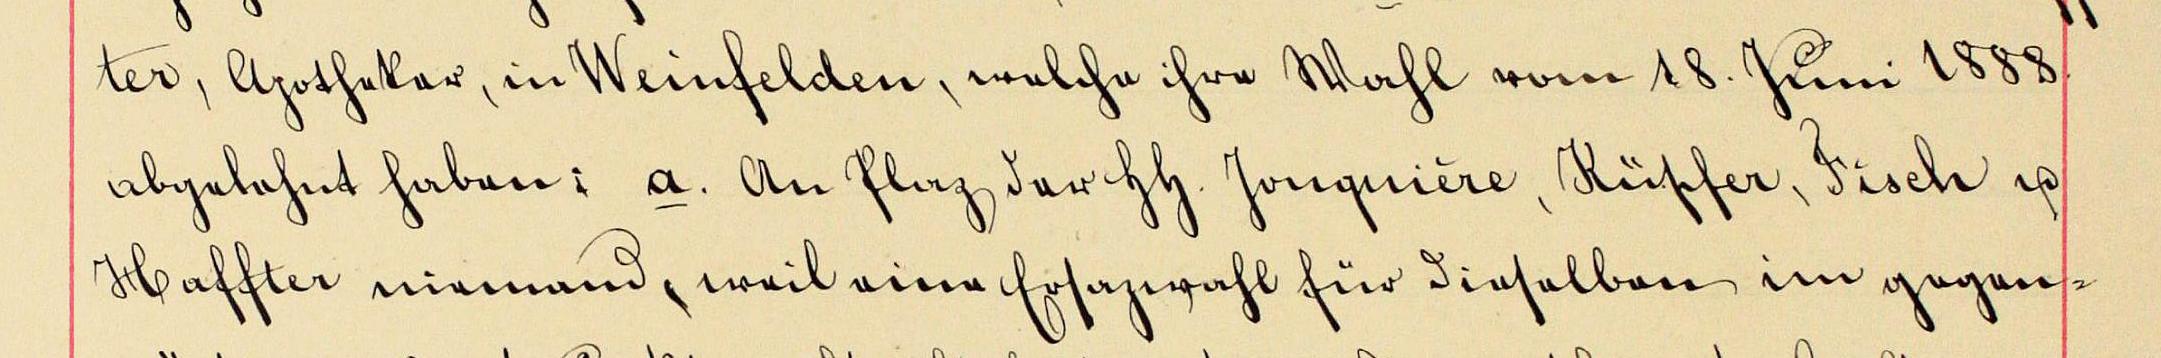 ter, Apotheker, in Weinfelden, welche ihre Wahl vom 18. Juni 1888.
abgelehnt haben: a. An Plaz der HH. Jonquière, Küpfer, Fisch u
Haffter niemand, weil eine Ersazwahl für dieselben im gegen-